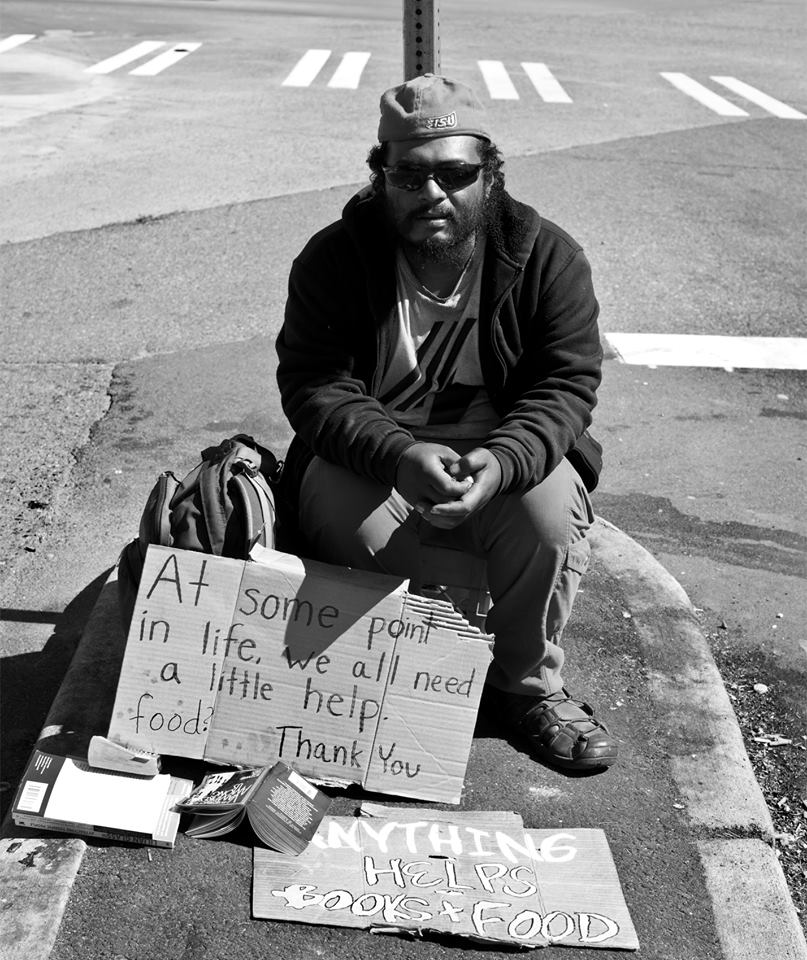 ISU
At some point
in life, we all need
a little help.
food?
Thank You
ANYTHING
HELPS
BOOKS + FOOD